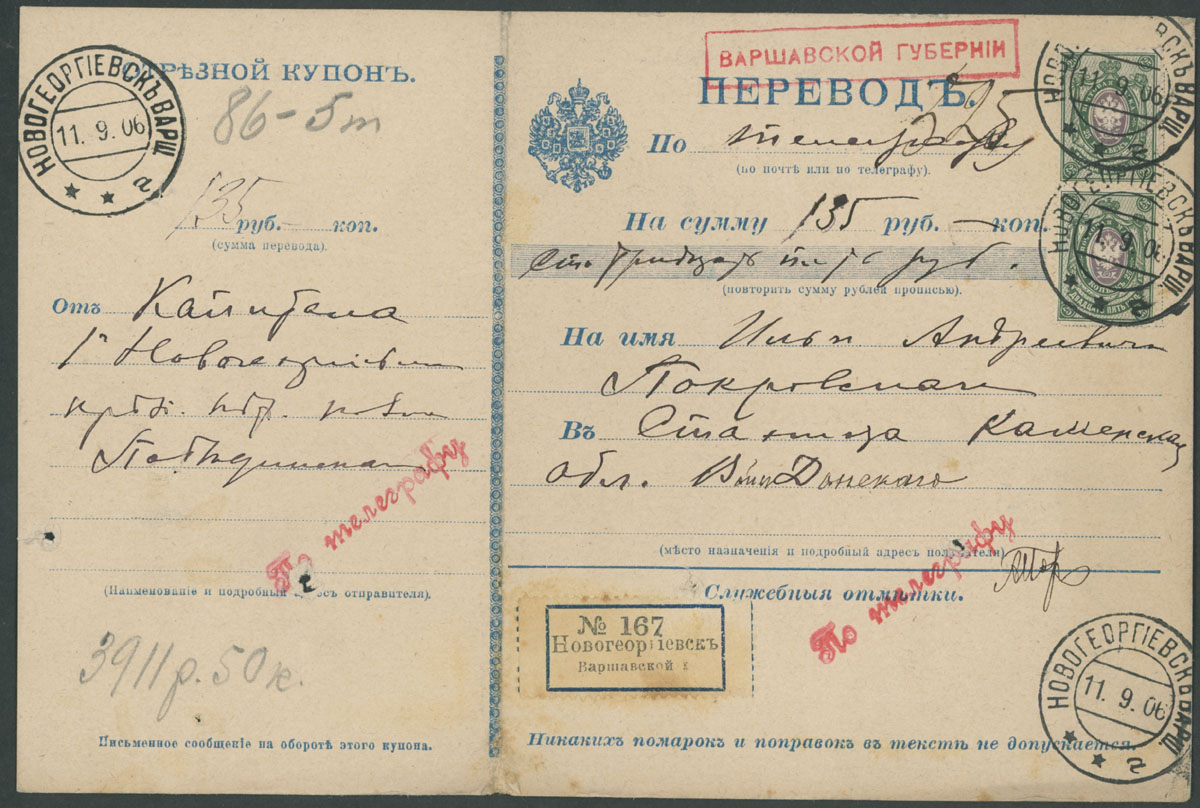 ОТРѢЗНОЙ КУПОНЪ.
НОВОГЕОРГІЕВСКЪ ВАРШ.
11.9.06
а
86-5т
135 руб. — коп.
(сумма перевода).
Отъ Капитана
крѣп.
По телеграфу
(Наименованіе и подробный адресъ отправителя).
3911р. 50к.
Письменное сообщеніе на оборотѣ этого купона.
ВАРШАВСКОЙ ГУБЕРНІИ
ПЕРЕВОДЪ.
По телеграфу
(по почтѣ или по телеграфу).
На сумму 135 руб. — коп.
Сто тридцать пять руб.
(повторить сумму рублей прописью).
На имя Ильи Андреевича
Покровскаго
Въ Станица Каменская
обл. Войск Донского
(мѣсто назначенія и подробный адресъ получателя)
Служебныя отмѣтки.
По телеграфу
№ 167
Новогеоргіевскъ
Варшавской г
Никакихъ помарокъ и поправокъ въ текстѣ не допускается.
НОВОГЕОРГІЕВСКЪ ВАРШ.
11.9.06
г
НОВОГЕОРГІЕВСКЪ ВАРШ.
11.9.06
г
НОВОГЕОРГІЕВСКЪ ВАРШ.
11.9.06
г